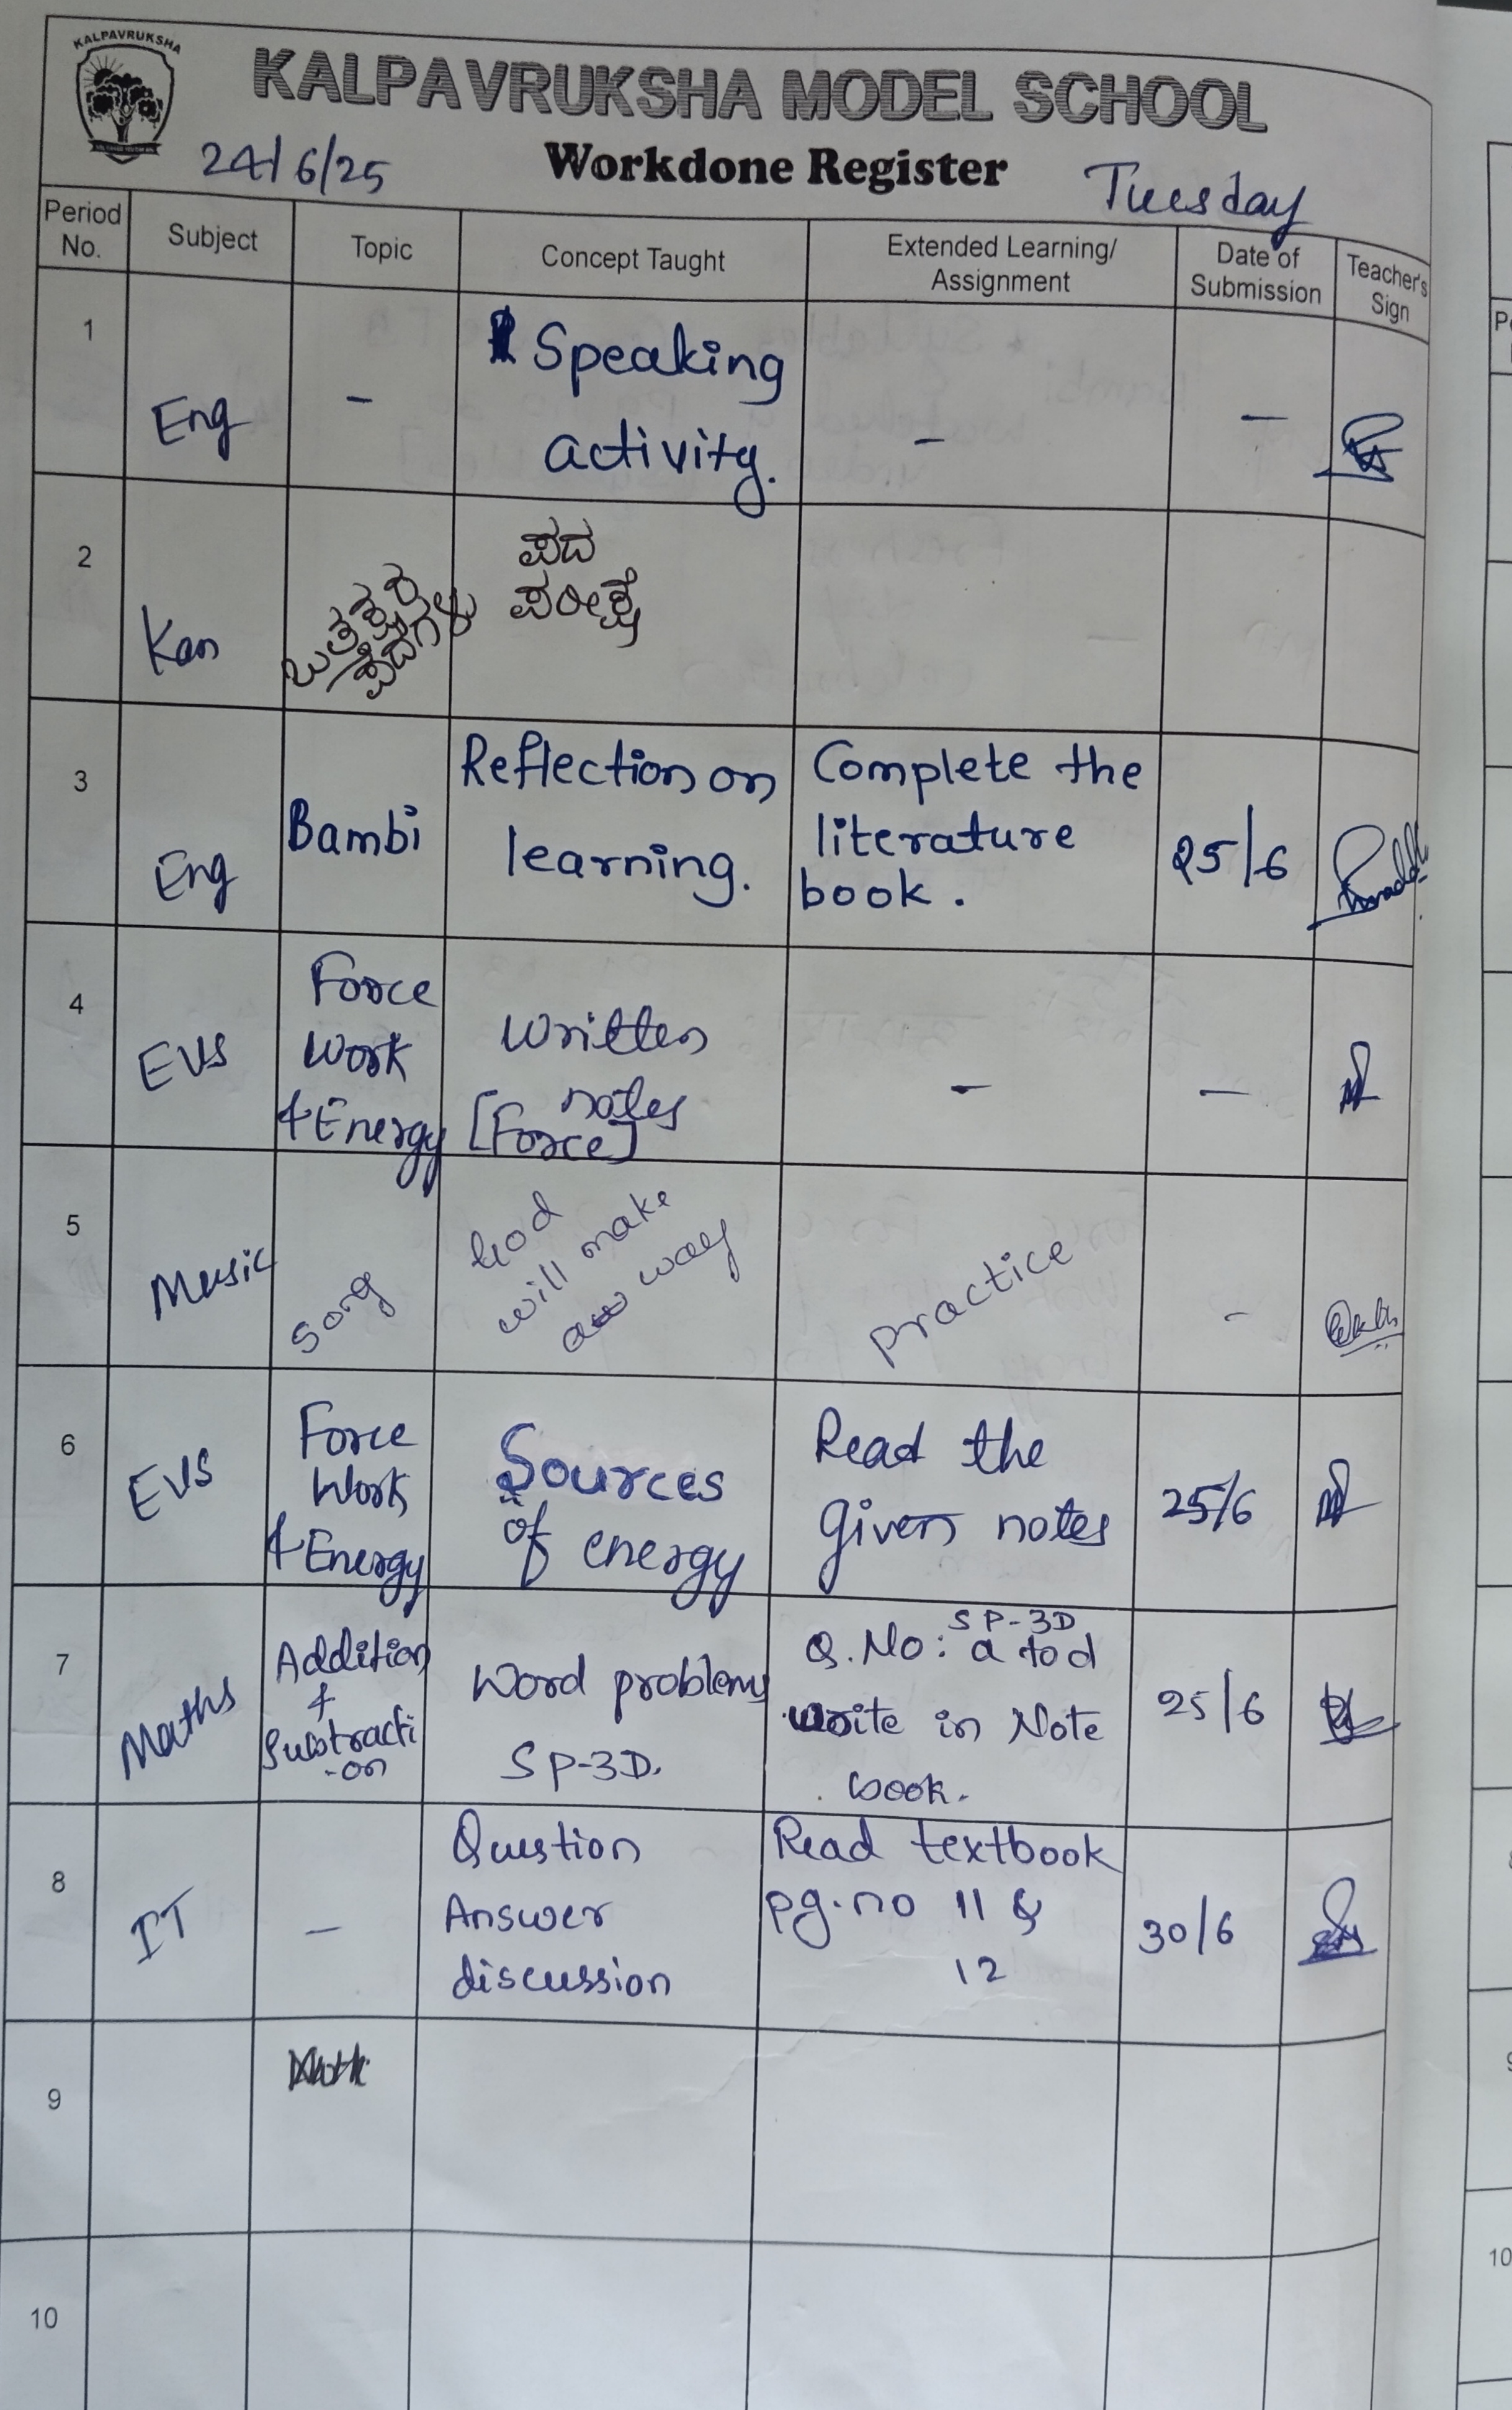 KALPAVRUKSHA
KALPAVRUKSHA MODEL SCHOOL
24/6/25 Workdone Register Tuesday
Period No. Subject Topic Concept Taught Extended Learning/ Assignment Date of Submission Teacher's Sign
1 Eng - Speaking activity. - -
2 Kan ಒತ್ತಕ್ಷರ ಪದಗಳು ಪದ ಪರೀಕ್ಷೆ
3 Eng Bambi Reflection on learning. Complete the literature book. 25/6
4 EVS Force Work & Energy Written notes [Force] - -
5 Music Song God will make a way practice -
6 EVS Force Work & Energy Sources of energy Read the given notes 25/6
7 Maths Addition & Subtracti-on Word problems SP-3D. SP-3D Q.No: a to d write in Note book. 25/6
8 IT - Question Answer discussion Read textbook pg.no 11 & 12 30/6
9
10
10